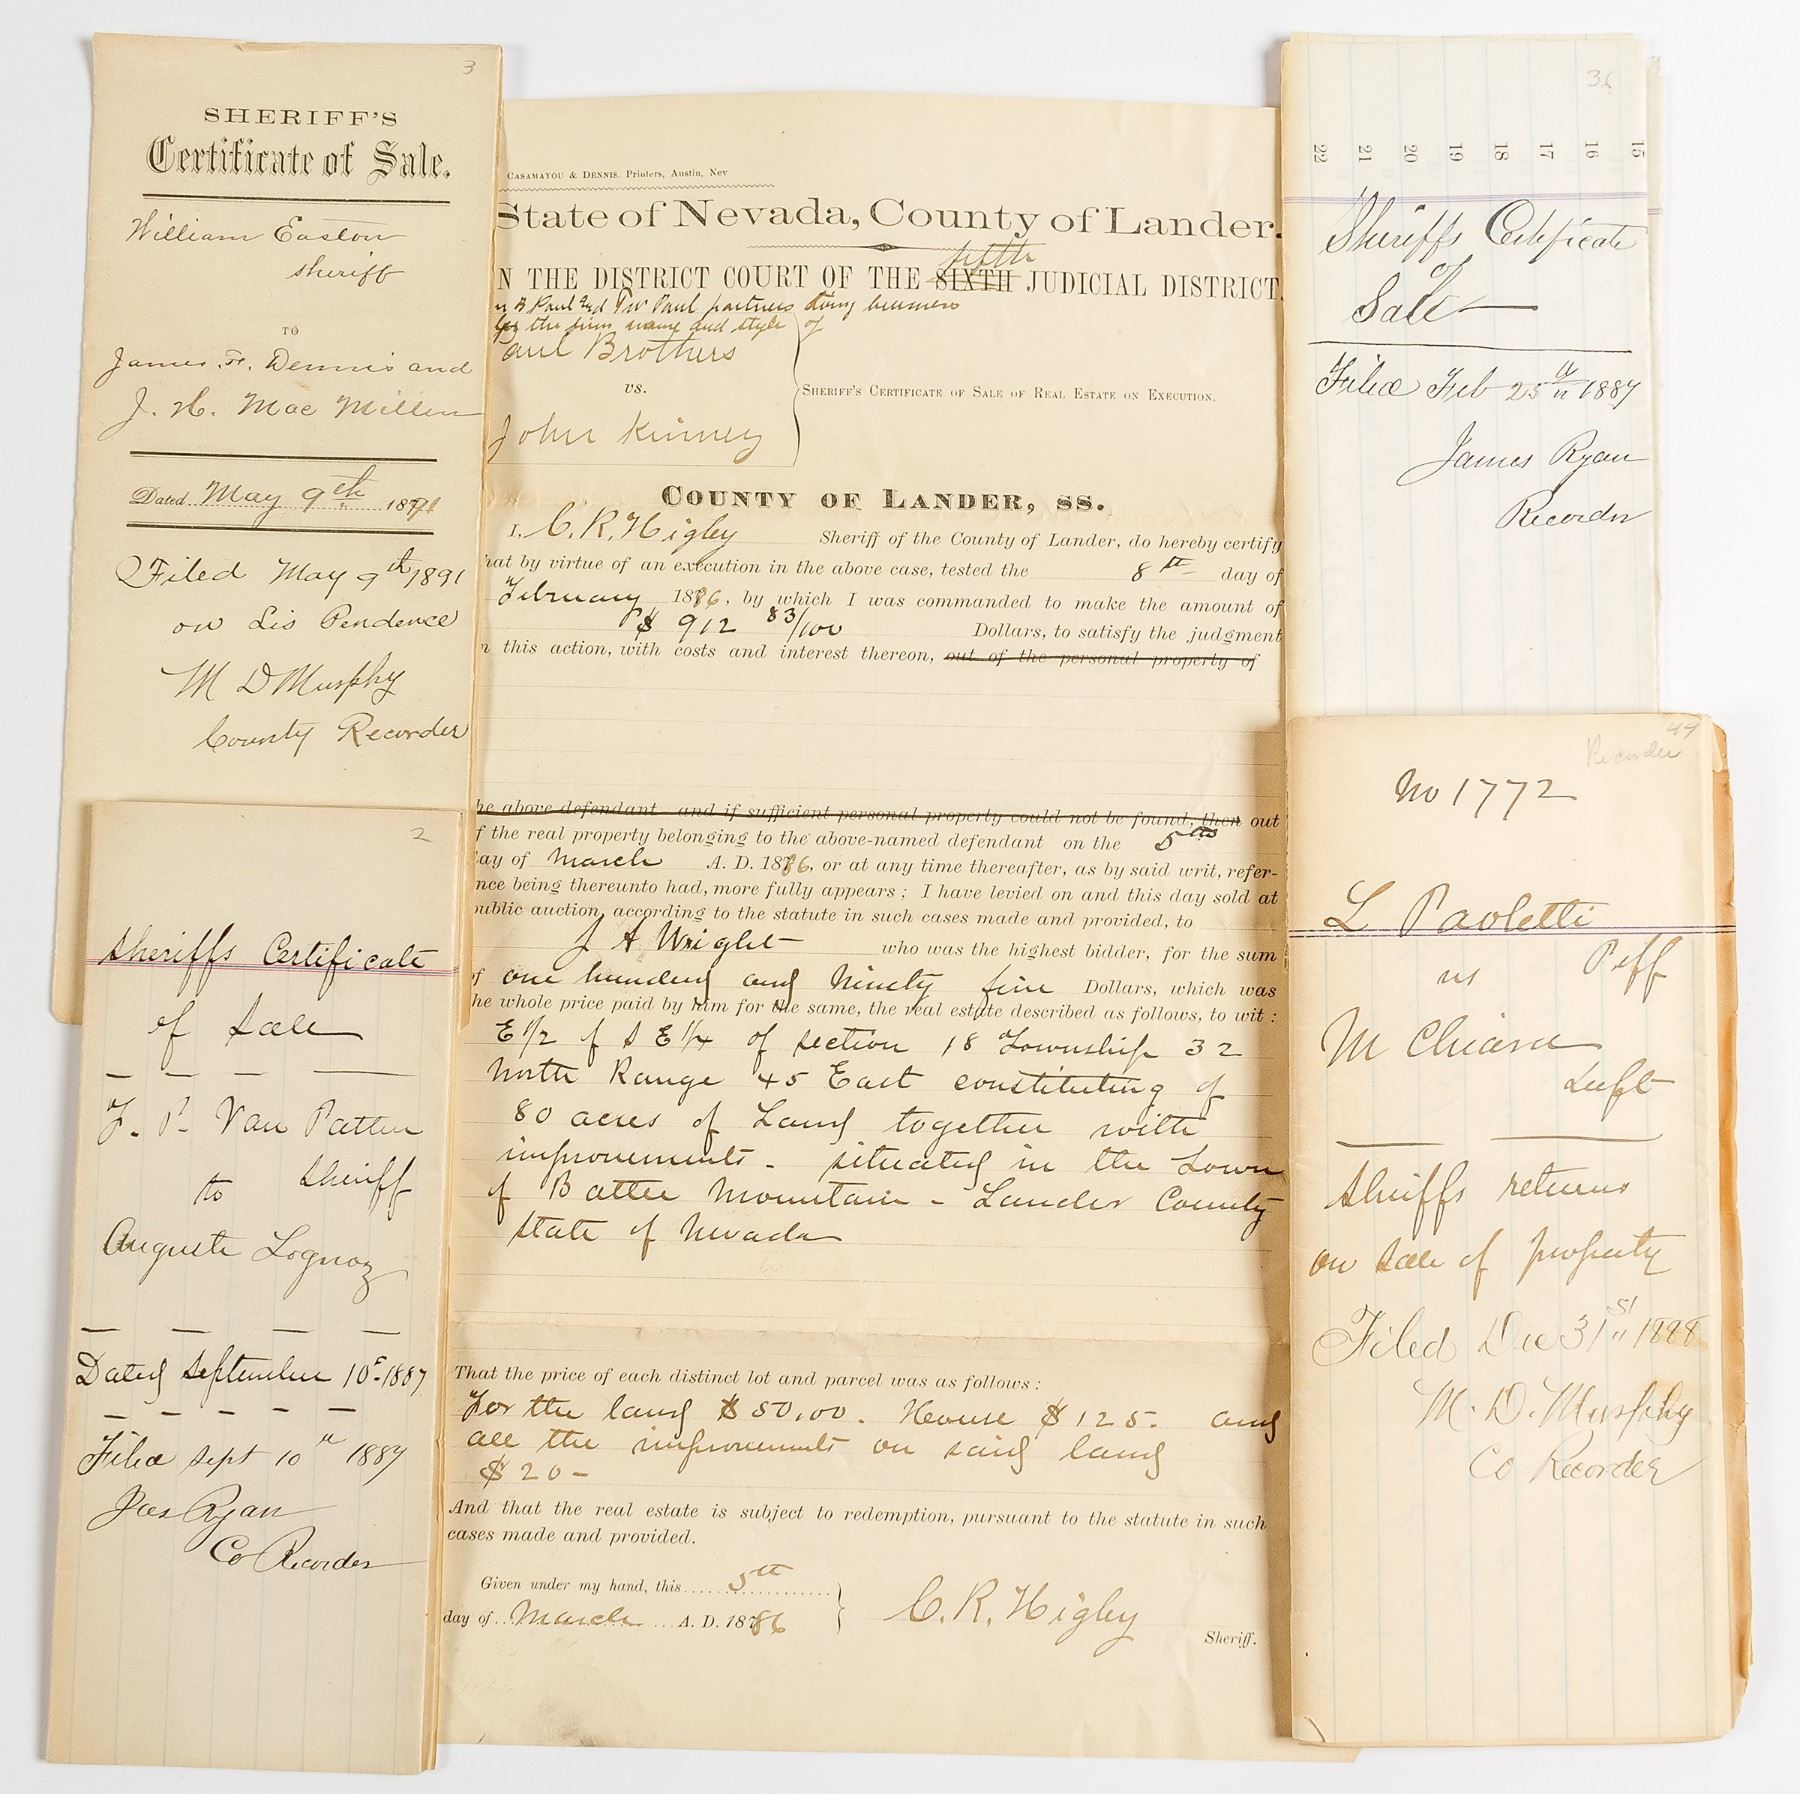 3
SHERIFF'S
Certificate of Sale.
William Easton
sheriff
TO
James. F. Dennis and
J. H. Mac Millen
Dated May 9th 1891
Filed May 9th 1891
on Lis Pendence
M D Murphy
County Recorder
2
Sheriffs Certificate
of Sale
F. P. Van Patten
Sheriff
to
Auguste Lognoz
Dated September 10th 1887
Filed Sept 10th 1887
Jas Ryan
Co Recorder
CASAMAYOU & DENNIS, Printers, Austin, Nev
State of Nevada, County of Lander.
fifth
N THE DISTRICT COURT OF THE SIXTH JUDICIAL DISTRICT.
B Paul and P W Paul partners doing business
the firm name and style of
aul Brothers
vs.
John Kinney
SHERIFF'S CERTIFICATE OF SALE OF REAL ESTATE ON EXECUTION.
COUNTY OF LANDER, SS.
I, C. R. Higby Sheriff of the County of Lander, do hereby certify
hat by virtue of an execution in the above case, tested the 8th day of
February 1886, by which I was commanded to make the amount of
$ 912 83/100 Dollars, to satisfy the judgment
n this action, with costs and interest thereon, out of the personal property of
he above defendant and if sufficient personal property could not be found, then out
f the real property belonging to the above-named defendant on the 5th
ay of March A. D. 1886, or at any time thereafter, as by said writ, refer-
nce being thereunto had, more fully appears; I have levied on and this day sold at
ublic auction, according to the statute in such cases made and provided, to
J A Wright who was the highest bidder, for the sum
of one hundred and Ninety five Dollars, which was
he whole price paid by him for the same, the real estate described as follows, to wit:
E 1/2 of S E 1/4 of section 18 Township 32
North Range 45 East constituting of
80 acres of Land together with
improvements - situated in the Town
of Battle Mountain - Lander County
State of Nevada
That the price of each distinct lot and parcel was as follows:
For the land $50.00. House $125- and
all the improvements on said land
$20-
And that the real estate is subject to redemption, pursuant to the statute in such
cases made and provided.
Given under my hand, this 5th
day of March A. D. 1886
C. R. Higby
Sheriff.
22 21 20 19 18 17 16 15
Sheriffs Certificate
of
Sale
Filed Feb 25th 1887
James Ryan
Recorder
49
Recorder
No 1772
L Paoletti
Peff
vs
M Chiara
Deft
Sheriffs returns
on sale of property
Filed Dec 31st 1888
M. D. Murphy
Co Recorder